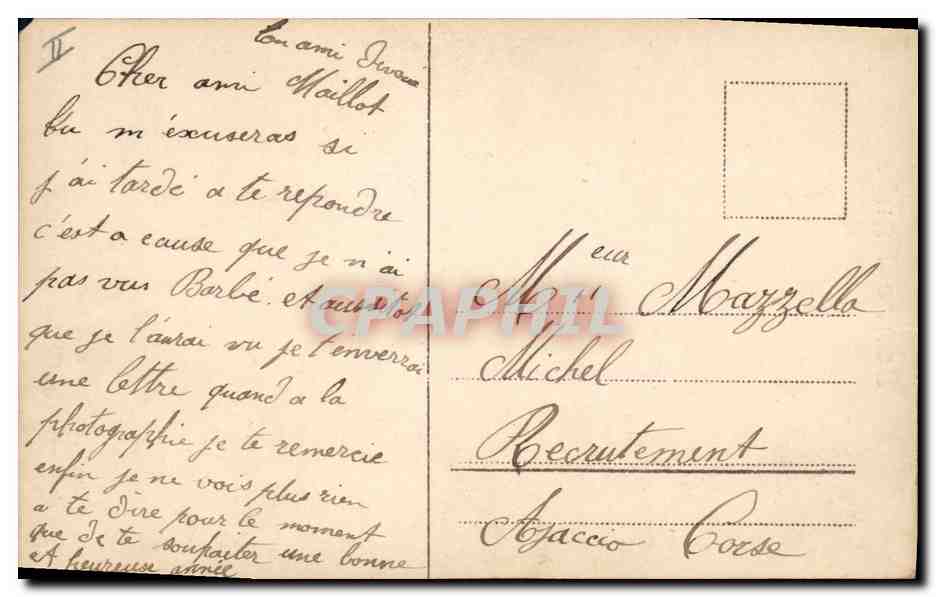 II
ton ami
Maillot
Cher ami
tu m'éxuseras si
j'ai tardé a te repondre
c'est a cause que je n'ai
pas vus Barbé. et aussitot
que je l'aurai vu je t'enverrai
une lettre quand a la
photographie je te remercie
enfin je ne vois plus rien
a te dire pour le moment
que de te souhaiter une bonne
et heureuse année
CPAPHIL
Meur Mazzella
Michel
Recrutement
Ajaccio Corse